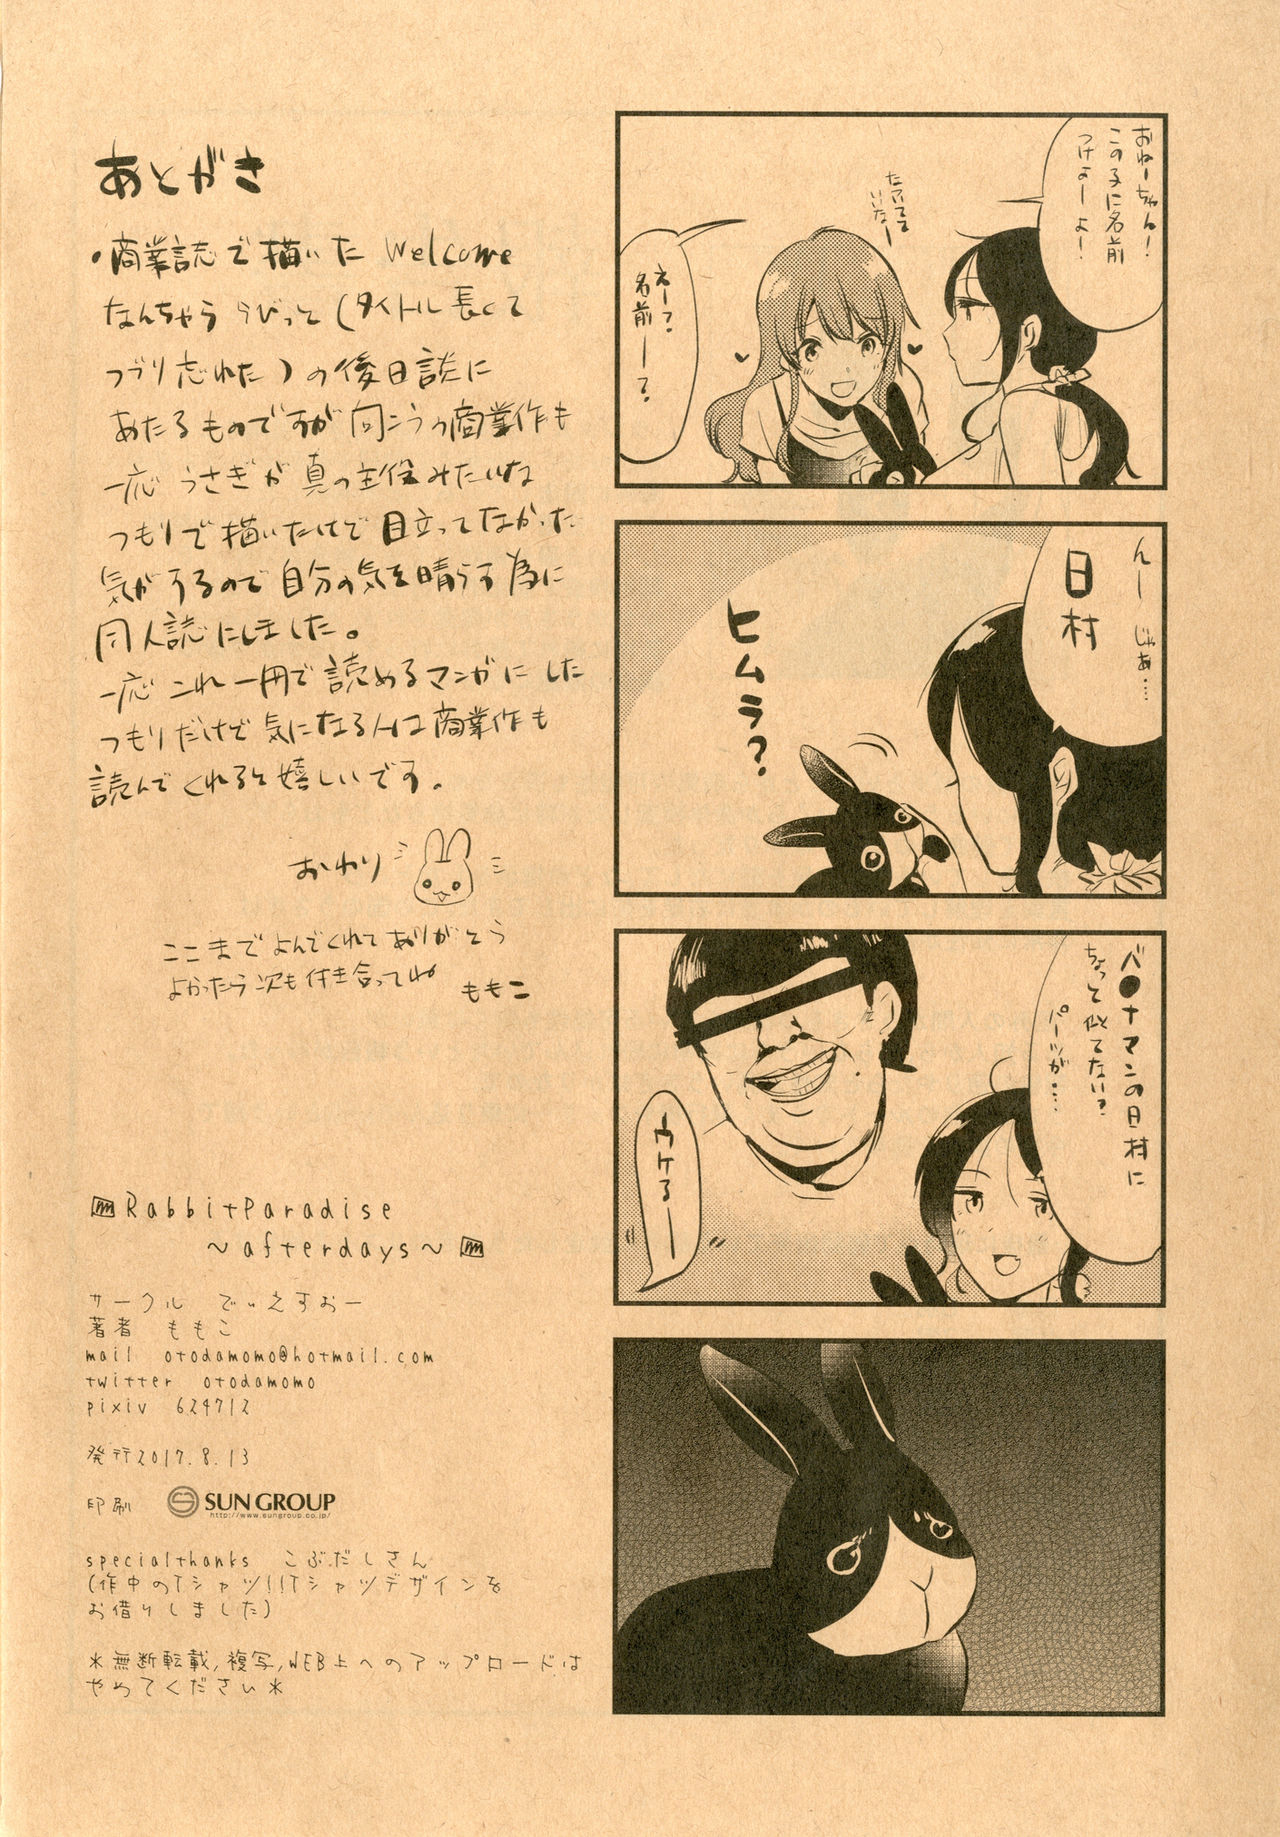 おねーちゃん！
この子に名前
つけよーよ！
えーっ？
名前ー？
んー じゃあ…
日村
ヒムラ？
バ●ナマンの日村に
ちょっと似てない？
パーツが…
ウケるー
あとがき
・商業誌で描いた Welcome
なんちゃらうびっと（タイトル長くて
つづり忘れた）の後日談に
あたるものですが向こうの商業作も
一応うさぎが真の主役みたいな
つもりで描いたけど目立ってなかった
気がするので自分の気を晴らす為に
同人誌にしました。
一応これ一冊で読めるマンガにした
つもりだけど気になる人は商業作も
読んでくれると嬉しいです。
おわり
ここまでよんでくれてありがとう
よかったら次も付き合ってね
ももこ
RabbitParadise
～afterdays～
サークル でぃえすおー
著者 ももこ
mail otodamomo@hotmail.com
twitter otodamomo
pixiv 624712
発行2017.8.13
印刷 SUN GROUP
http://www.sungroup.co.jp/
specialthanks こぶだしさん
(作中のTシャツ!!Tシャツデザインを
お借りしました)
＊無断転載,複写,WEB上へのアップロードは
やめてください＊